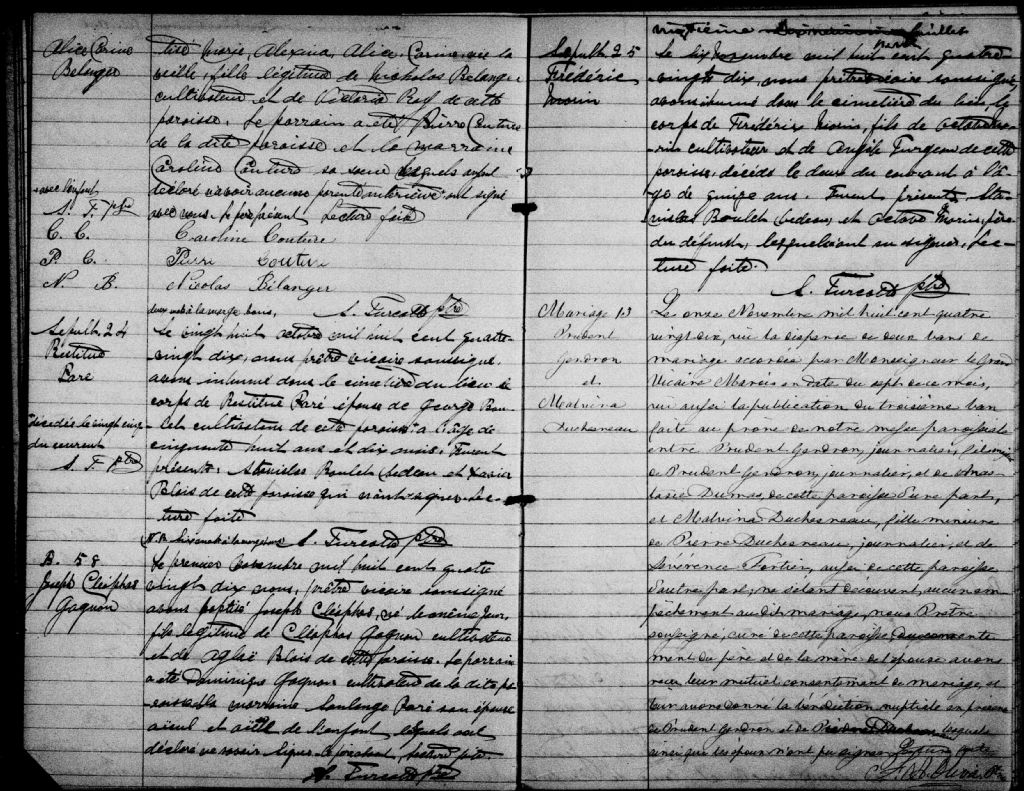 Alice Corine
Belanger
tisé Marie, Alexina, Alice, Corine, née la
veille, fille légitime de Nicholas Belanger
cultivateur et de de cette
paroisse. Le parrain a été Pierre Couture
de la dite paroisse et la marraine
Caroline Couture sa soeur lesquels ayant
déclaré n'avoir aucune parenté ont signé
avec nous. le père présent Lecture faite
avec l'enfant
A. T. ptre
C. C.
Caroline Couture
P. C.
Pierre Couture
N. B.
Nicolas Bélanger
deux mots à la marge bons.
A. Turcotte ptre
Sepult. 24
Restitue
Paré
décédée le vingt cinq
du courant
A. T. ptre
Le vingt huit octobre mil huit cent quatre
vingt dix, nous prêtre vicaire soussigné,
avons inhumé dans le cimetière du lieu le
corps de Restitue Paré épouse de George Bou-
let cultivateur de cette paroisse à l'âge de
cinquante huit ans et dix mois. Furent
présents: Stanislas Boulet bedeau et Xavier
Blais de cette paroisse qui n'ont su signer. Lec-
ture faite
N.B. six mots à la marge bons
A. Turcotte ptre
B. 58
Joseph Cléophas
Gagnon
Le premier novembre mil huit cent quatre
vingt dix nous, prêtre vicaire soussigné
avons baptisé Joseph Cléophas, né le même jour,
fils légitime de Cléophas Gagnon cultivateur
et de Aglaé Blais de cette paroisse. Le parrain
a été Dominique Gagnon cultivateur de la dite pa-
roisse et la marraine Solange Paré son épouse
aieul et de l'enfant lesquels ont
déclaré ne savoir signer. le père absent, lecture faite.
A. Turcotte ptre
Sepult. 25
Frédéric
Morin
Le six novembre mil huit cent quatre
vingt dix, nous prêtre vicaire soussigné,
avons inhumé dans le cimetière du lieu, le
corps de Frédéric Morin, fils de Octave Mo-
rin cultivateur et de Angèle Turgeon de cette
paroisse, décédé le deux du courant à l'â-
ge de quinze ans. Furent présents Sta-
nislas Boulet bedeau, et Octave Morin, père
du défunt, lesquels n'ont su signer. Lec-
ture faite.
A. Turcotte ptre
Mariage 13
Prudent
Gendron
et
Malvina
Duchesneau
Le onze Novembre mil huit cent quatre
vingt dix, vu la dispense de deux bans de
mariage accordée par Monseigneur le Grand
Vicaire Marois en date du sept de ce mois,
vu aussi la publication du troisième ban
faite au prône de notre messe paroissiale
entre Prudent Gendron, journalier, fils
de Prudent Gendron, journalier, et de Anas-
tasie Dumas, de cette paroisse d'une part,
et Malvina Duchesneau, fille mineure
de Pierre Duchesneau, journalier, et de
Sévérence Fortier, aussi de cette paroisse
d'autre part; ne s'étant découvert, aucun em-
pêchement au dit mariage, nous Prêtre
soussigné, curé de cette paroisse, du consente-
ment du père et de la mère de l'épouse avons
reçu leur mutuel consentement de mariage, et
leur avons donné la bénédiction nuptiale en présence
de Prudent Gendron et de Pierre Duchesneau lesquels
ainsi que les époux n'ont pu signer. Lecture faite